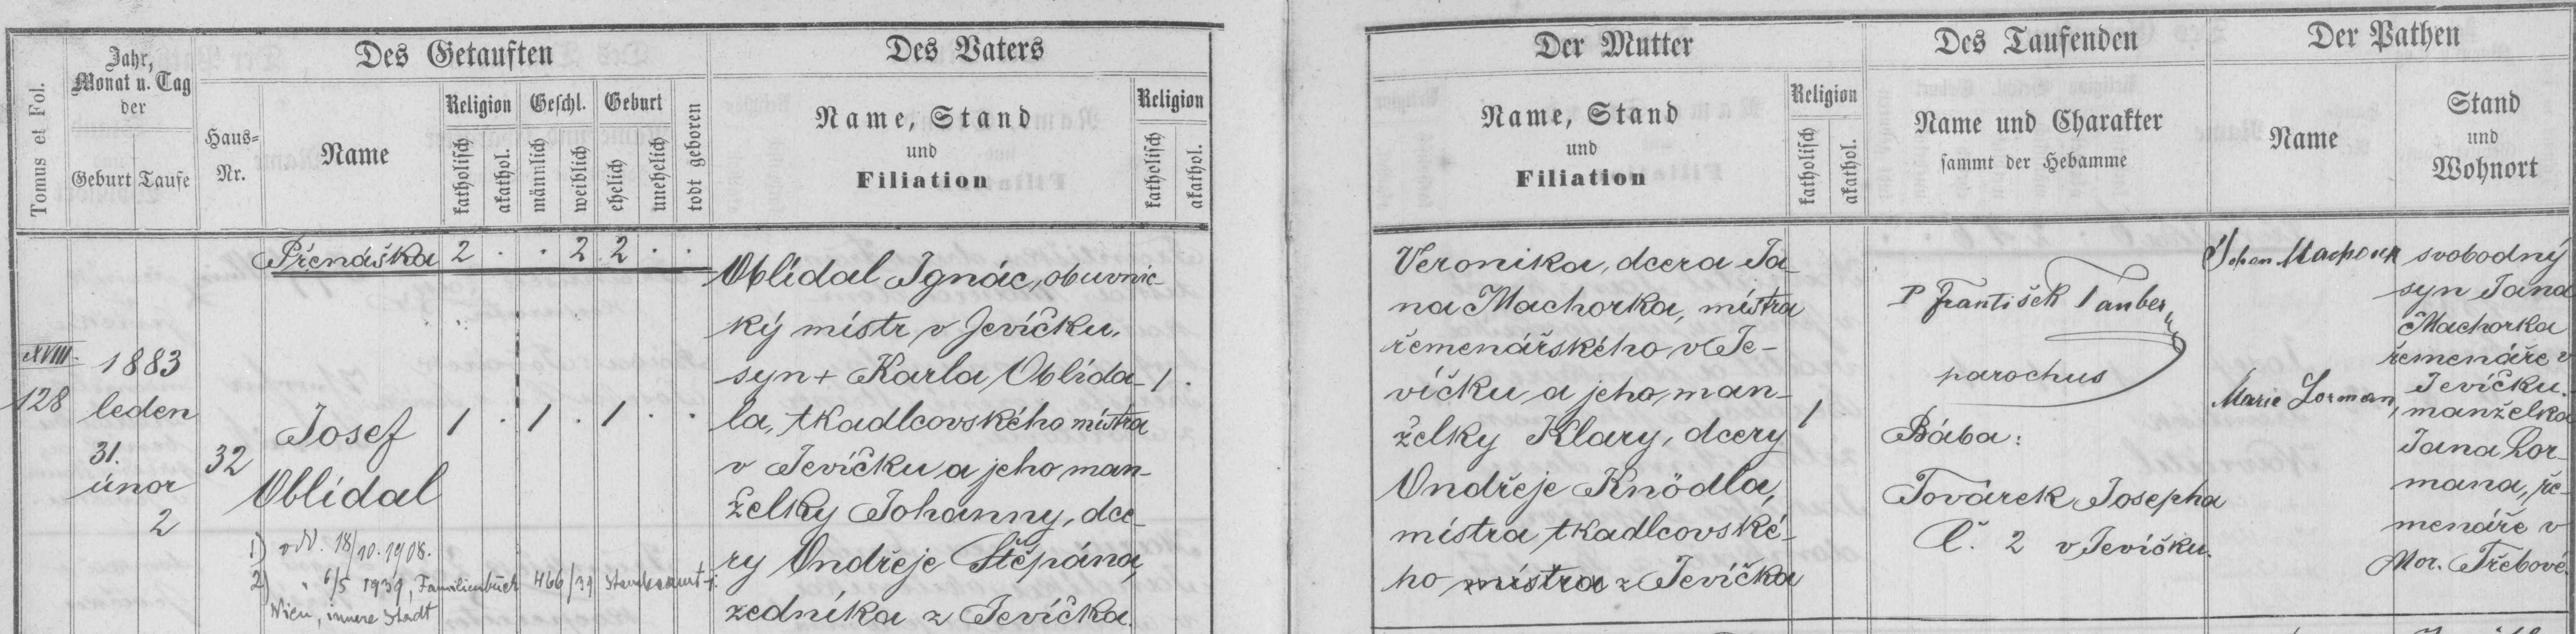 Tomus et Fol.
Jahr,
Monat u. Tag
der
Geburt
Taufe
Des Getauften
Haus-
Nr.
Name
Religion
katholisch
akathol.
Geschl.
männlich
weiblich
Geburt
ehelich
unehelich
todt geboren
Des Vaters
Name, Stand
und
Filiation
Religion
katholisch
akathol.
Der Mutter
Name, Stand
und
Filiation
Religion
katholisch
akathol.
Des Taufenden
Name und Charakter
sammt der Hebamme
Der Pathen
Name
Stand
und
Wohnort
Přenáška 2 . . 2 2 . .
XVIII.
128
1883
leden
31.
únor
2
32
Josef
Oblidal
1 . 1 . 1 . .
1) odd. 18/10. 1908.
2) " 6/5 1939, Familienbuch 466/39 Standesamt
Wien, innere Stadt
Oblídal Ignác, obuvnic-
ký mistr v Jevíčku,
syn + Karla Oblída-
la, tkadlcovského mistra
v Jevíčku a jeho man-
želky Johanny, dce-
ry Ondřeje Štěpána,
zedníka z Jevíčka.
1 .
Veronika, dcera Ja-
na Machorka, místra
řemenářského v Je-
víčku a jeho man-
želky Klary, dcery
Ondřeje Knödla,
místra tkadlcovské-
ho mistra z Jevíčka
1
P František Tauber,
parochus
Bába:
Továrek Josepha
č. 2 v Jevíčku.
Machorek
Marie Lorman,
svobodný
syn Jana
Machorka
řemenáře v
Jevíčku.
manželka
Jana Lor-
mana, ře-
menáře v
Mor. Třebové.